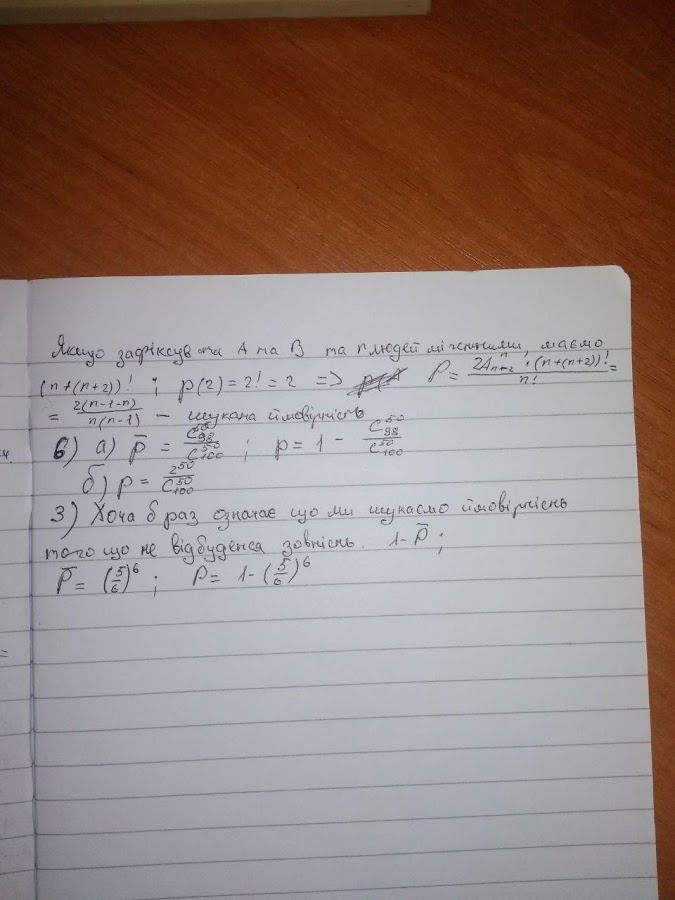 Якщо зафіксувати A та B та n людей між ними, маємо
(n+(n+2))! ; p(2) = 2! = 2 => P = 2Aⁿₙ₋₂ · (n+(n+2))! / n! =
= 2(n-1-n) / n(n-1) - шукана ймовірність
6) а) P̅ = C⁵⁰₉₈ / C⁵⁰₁₀₀ ; p = 1 - C⁵⁰₉₈ / C⁵⁰₁₀₀
б) p = 2⁵⁰ / C⁵⁰₁₀₀
3) Хоча б раз означає що ми шукаємо ймовірність
того що не відбудеться зовність. 1-P̅ ;
P̅ = (5/6)⁶ ; P = 1-(5/6)⁶